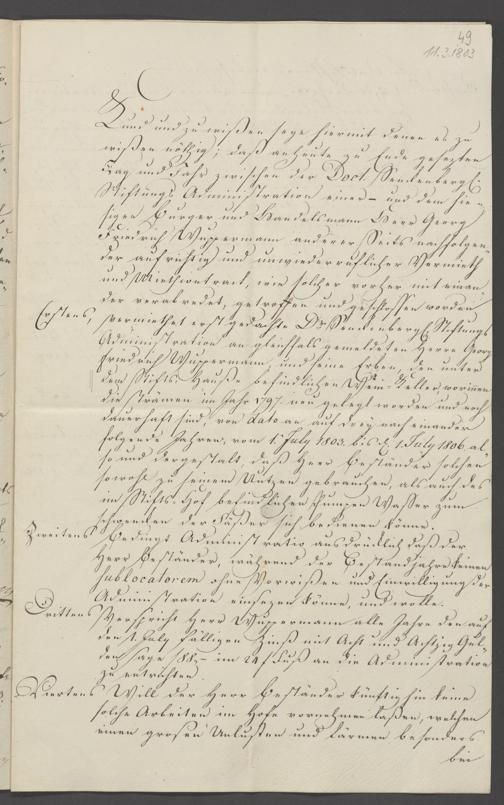 49
11.3.1803
Kund und zu wißen seye hiermit denen es zu
wißen nöthig; daß anheute zu Ende gesezten
Tag und Jahr zwischen der Doct. Senckenberg.
Stiftungs Administration einer- und dem hie-
sigen Burger und Handelsmann Herr Georg
Friedrich Wuppermann anderer Seits nachfolgen-
der aufrichtig und unwiederruflicher Vermieth
und Miethcontract, wie solcher vorher mit einan-
der verabredet, getroffen und geschlossen worden
Erstens, vermiethet erst gedachte Dr. Senckenberg. Stiftungs
Administration an gleichfals gemeldeten Herrn Georg
Friedrich Wuppermann, und seine Erben, den unter
dem Stifts-Hauße befindlichen Wein-Keller, worinnen
die Främen im Jahr 1797. neu gelegt worden und noch
dauerhaft sind, von dato an auf drey nacheinander
folgende Jahren, vom 1. July 1803. bis d. 1. July 1806. al-
so und dergestalt, daß Herr Beständer solchen
sowohl zu seinem Nutzen gebrauchen, als auch des
im Stifts-Hof befindlichen Pumpen Wasser zum
schwenken der Fäßer sich bedienen könne.
Zweitens Bedingt Administratio ausdrücklich daß der
Herr Beständer, während der Bestandjahre keinen
sublocatorem ohne Vorwißen und Einwilligung der
Administration einsezen könne, und wolle.
Drittens Verspricht Herr Wuppermann alle Jahre den auf
den 1. July fälligen Zinß mit Acht und Achtzig Gul-
den sage f 88,- im 24 f Fuß an die Administration
zu entrichten.
Viertens Will der Herr Beständer künftig hin keine
solche Arbeiten im Hofe vornehmen laßen, welchen
einen großen Unlusten und Lärmen besonders
bei